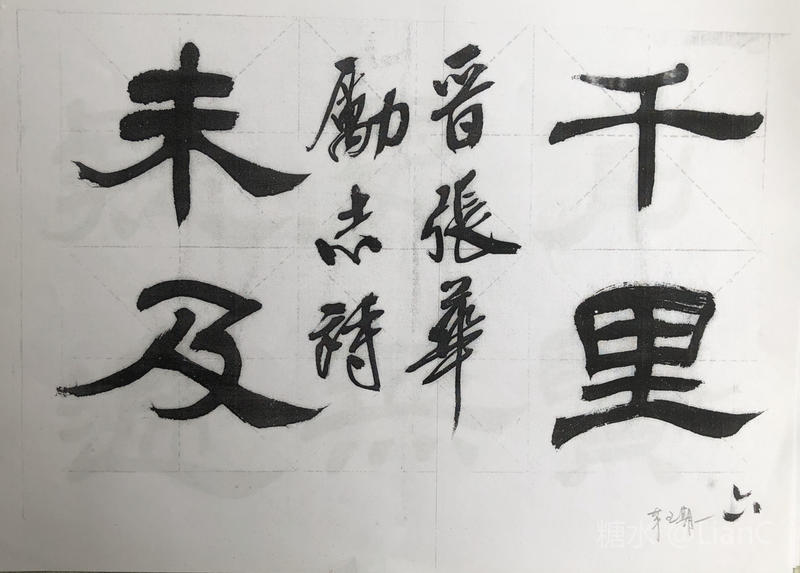 千里
晋張華
勵志詩
未及
六
糖水 @LianC